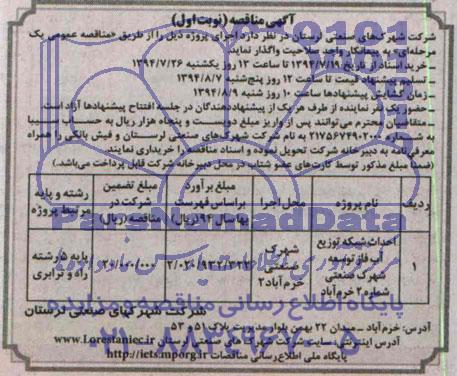 آگهی مناقصه (نوبت اول)
شرکت شهرکهای صنعتی لرستان در نظر دارد اجرای پروژه ذیل را از طریق «مناقصه عمومی یک
مرحله‌ای» به پیمانکار واجد صلاحیت واگذار نماید
-خرید اسناد از تاریخ ۱۳۹۴/۷/۱۹ تا ساعت ۱۳ روز یکشنبه ۱۳۹۴/۷/۲۶
-تسلیم پیشنهاد قیمت تا ساعت ۱۲ روز پنج‌شنبه ۱۳۹۴/۸/۷
-زمان گشایش پیشنهادها ساعت ۱۰ روز شنبه ۱۳۹۴/۸/۹
-حضور یک نفر نماینده از طرف هر یک از پیشنهاددهندگان در جلسه افتتاح پیشنهادها آزاد است.
متقاضیان محترم می‌توانند پس از واریز مبلغ دویست و پنجاه هزار ریال به حساب سیبا
به شماره ۲۱۷۵۶۷۴۹۰۲۰۰۰ به نام شرکت شهرک‌های صنعتی لرستان و فیش بانکی را همراه
معرفی‌نامه به دبیرخانه شرکت تحویل نموده و اسناد مناقصه را خریداری نمایند.
(ضمناً مبلغ مذکور توسط کارت‌های عضو شتاب در محل دبیرخانه شرکت قابل پرداخت می‌باشد.)
ردیف
نام پروژه
محل اجرا
مبلغ برآورد براساس فهرست بهاسال ۹۴ (ریال)
مبلغ تضمین شرکت در مناقصه (ریال)
رشته و پایه مرتبط پروژه
۱
احداث شبکه توزیع آب فاز توسعه شهرک صنعتی شماره ۲ خرم‌آباد
شهرک صنعتی خرم‌آباد ۲
پایه ۵ رشته راه و ترابری
شرکت شهرکهای صنعتی لرستان
آدرس: خرم‌آباد -میدان ۲۲ بهمن بلوار مدیریت پلاک ۵۱ و ۵۳
آدرس اینترنتی: سایت شرکت شهرک‌های صنعتی لرستان www.Lorestaniec.ir
پایگاه ملی اطلاع رسانی مناقصات http://iets.mporg.ir
ParsNamadData
پایگاه اطلاع رسانی مناقصه و مزایده